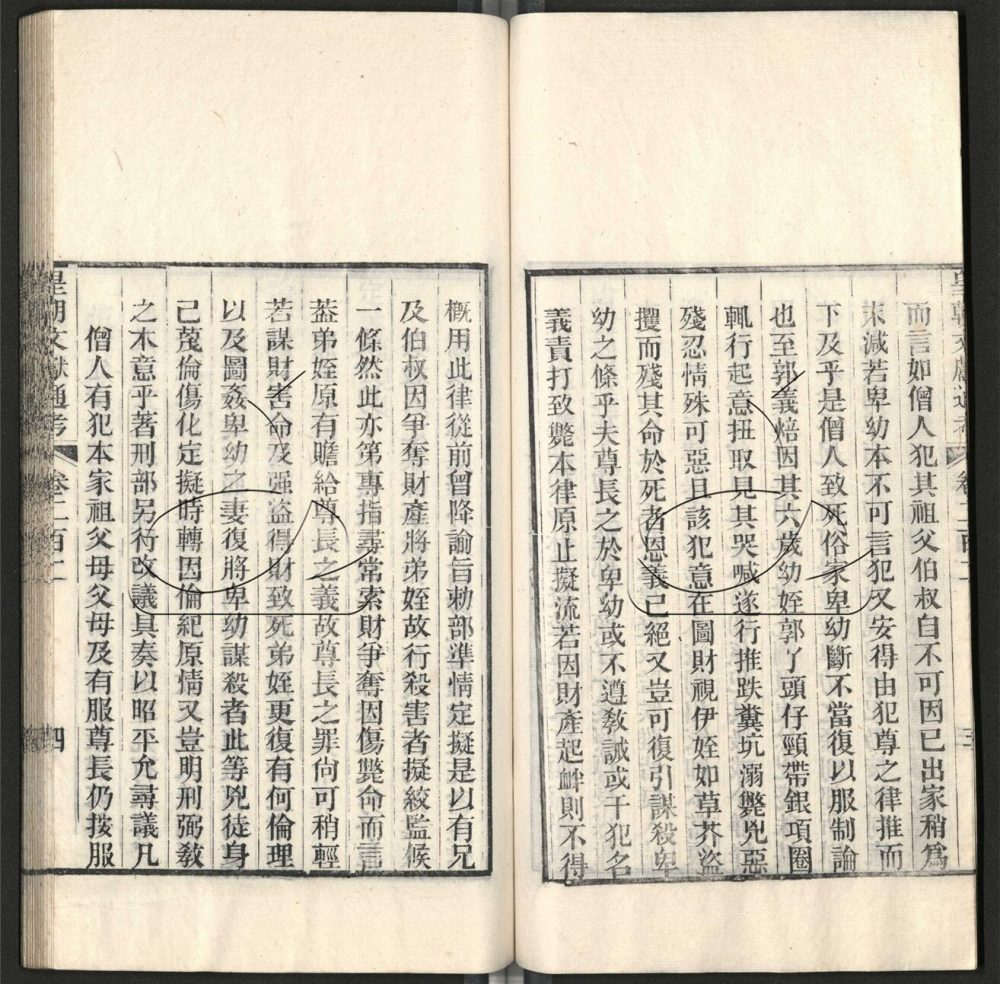 皇朝文獻通考 卷二百二 三
而言如僧人犯其祖父伯叔自不可因已出家稍爲
末減若卑幼本不可言犯又安得由犯尊之律推而
下及乎是僧人致死俗家卑幼斷不當復以服制論
也至郭義焙因其六歲幼姪郭丫頭仔頸帶銀項圈
輒行起意扭取見其哭喊遂行推跌糞坑溺斃兇惡
殘忍情殊可惡且該犯意在圖財視伊姪如草芥盜
攫而殘其命於死者恩義已絕又豈可復引謀殺卑
幼之條乎夫尊長之於卑幼或不遵敎誡或干犯名
義責打致斃本律原止擬流若因財產起衅則不得
概用此律從前曾降諭旨勅部準情定擬是以有兄
及伯叔因爭奪財產將弟姪故行殺害者擬絞監候
一條然此亦第專指尋常索財爭奪因傷斃命而言
葢弟姪原有贍給尊長之義故尊長之罪尙可稍輕
若謀財害命及强盜得財致死弟姪更復有何倫理
以及圖姦卑幼之妻復將卑幼謀殺者此等兇徒身
己蔑倫傷化定擬時轉因倫紀原情又豈明刑弼敎
之本意乎著刑部另行改議具奏以昭平允尋議凡
僧人有犯本家祖父母父母及有服尊長仍按服
皇朝文獻通考 卷二百二 四